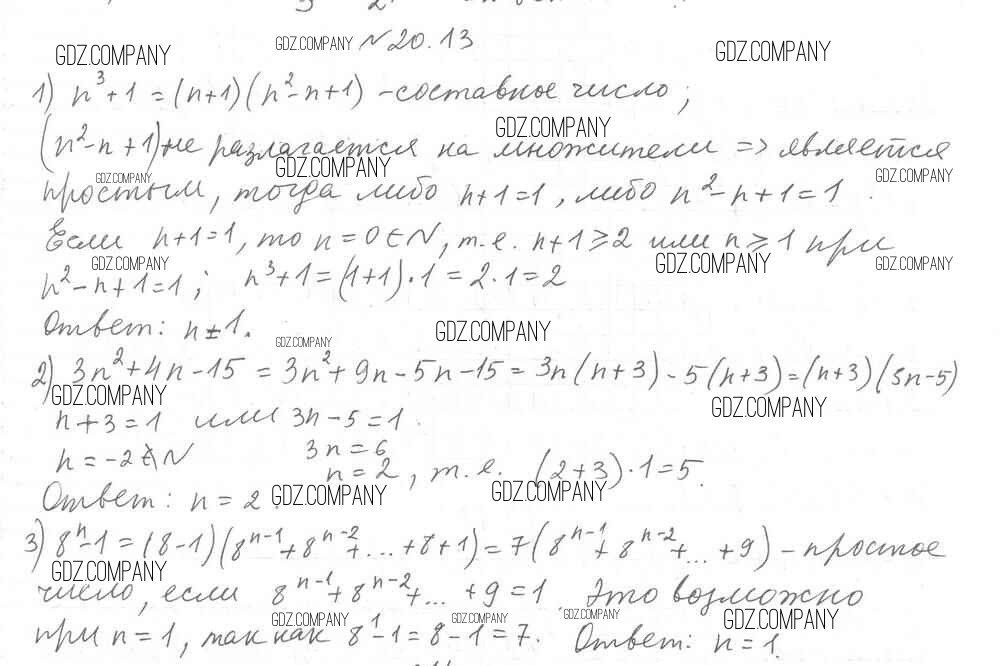 GDZ.COMPANY GDZ.COMPANY №20.13 GDZ.COMPANY
1) n³+1=(n+1)(n²-n+1) - составное число;
GDZ.COMPANY
(n²-n+1) - не разлагается на множители => является
GDZ.COMPANY GDZ.COMPANY GDZ.COMPANY
простым, тогда либо n+1=1, либо n²-n+1=1.
Если n+1=1, то n=0∈N, т.е. n+1⩾2 или n⩾1 при
GDZ.COMPANY GDZ.COMPANY GDZ.COMPANY
n²-n+1=1; n³+1=(1+1)·1=2·1=2
Ответ: n=1. GDZ.COMPANY
GDZ.COMPANY
2) 3n²+4n-15=3n²+9n-5n-15=3n(n+3)-5(n+3)=(n+3)(3n-5)
GDZ.COMPANY GDZ.COMPANY
n+3=1 или 3n-5=1.
n=-2∉N 3n=6
n=2, т.е. (2+3)·1=5.
Ответ: n=2. GDZ.COMPANY GDZ.COMPANY
3) 8ⁿ-1=(8-1)(8ⁿ⁻¹+8ⁿ⁻²+...+8+1)=7(8ⁿ⁻¹+8ⁿ⁻²+...+9) - простое
GDZ.COMPANY
число, если 8ⁿ⁻¹+8ⁿ⁻²+...+9=1. Это возможно
GDZ.COMPANY GDZ.COMPANY GDZ.COMPANY GDZ.COMPANY
при n=1, так как 8¹-1=8-1=7. Ответ: n=1.